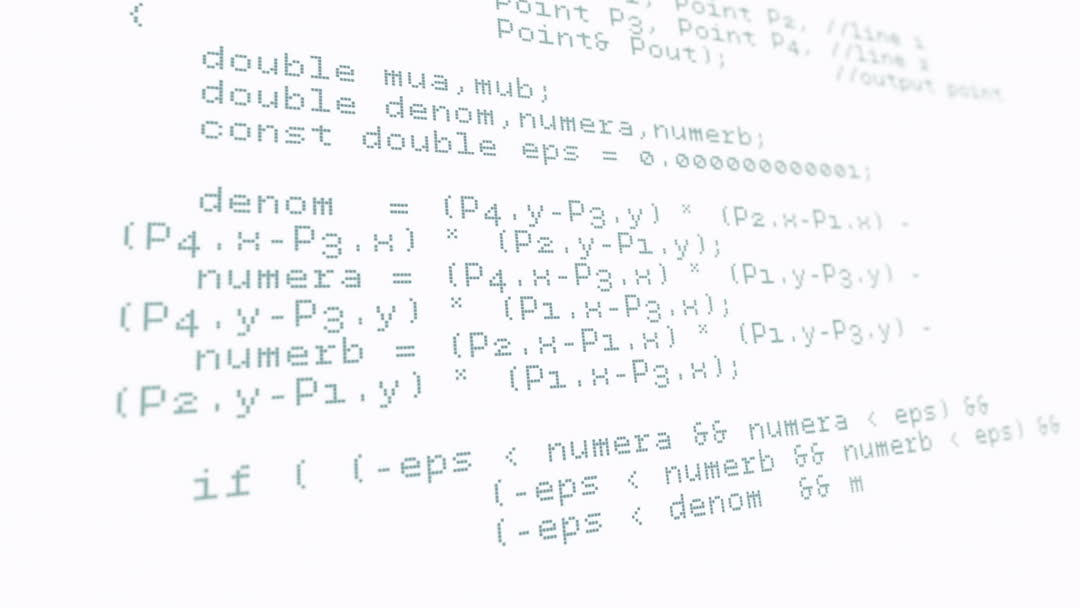 Point P2, //line 1
{ Point P3, Point P4, //line 1
Point& Pout); //output point
double mua,mub;
double denom,numera,numerb;
const double eps = 0.000000000001;
denom = (P4.y-P3.y) * (P2.x-P1.x) -
(P4.x-P3.x) * (P2.y-P1.y);
numera = (P4.x-P3.x) * (P1.y-P3.y) -
(P4.y-P3.y) * (P1.x-P3.x);
numerb = (P2.x-P1.x) * (P1.y-P3.y) -
(P2.y-P1.y) * (P1.x-P3.x);
if ( (-eps < numera && numera < eps) &&
(-eps < numerb && numerb < eps) &&
(-eps < denom && m